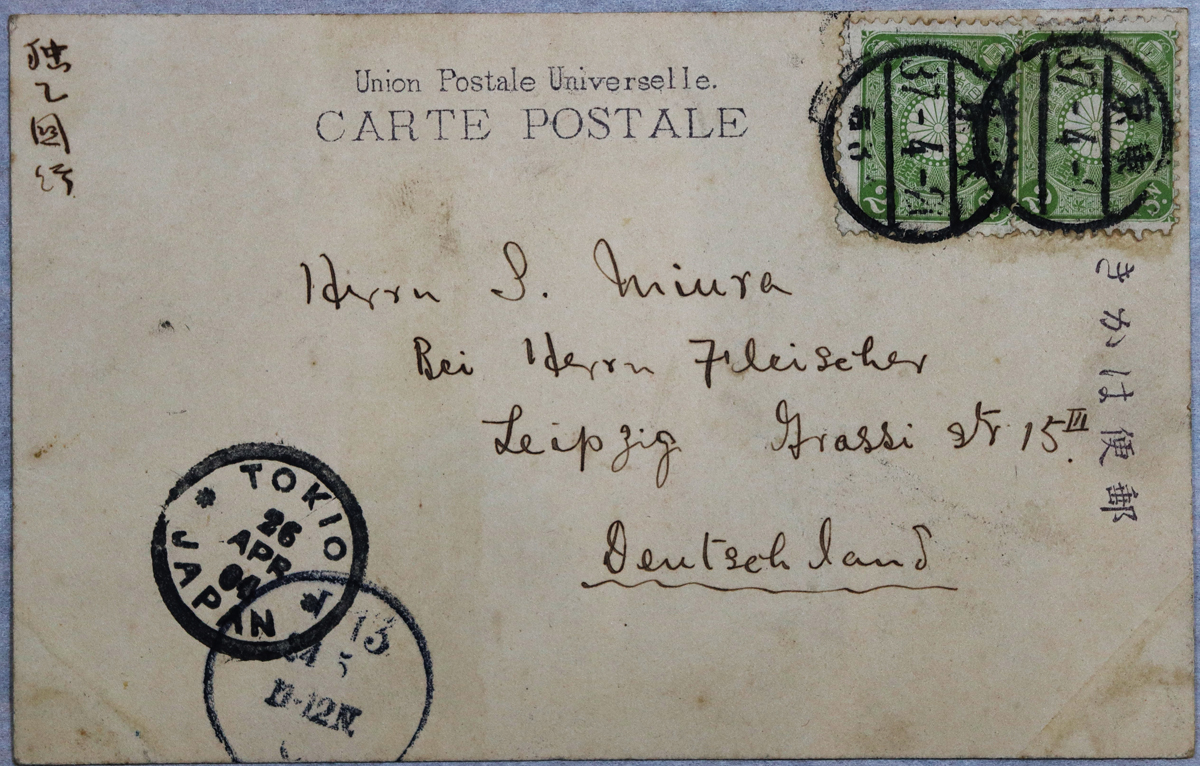 独乙国行
Union Postale Universelle.
CARTE POSTALE
Herrn S. Miura
Bei Herrn Fleischer
Leipzig Grassi str 15 III.
Deutschland
きかは便郵
TOKIO
26
APR
04
JAPAN
13
5
-12N.
37-4-
37-4-
東京
2
2